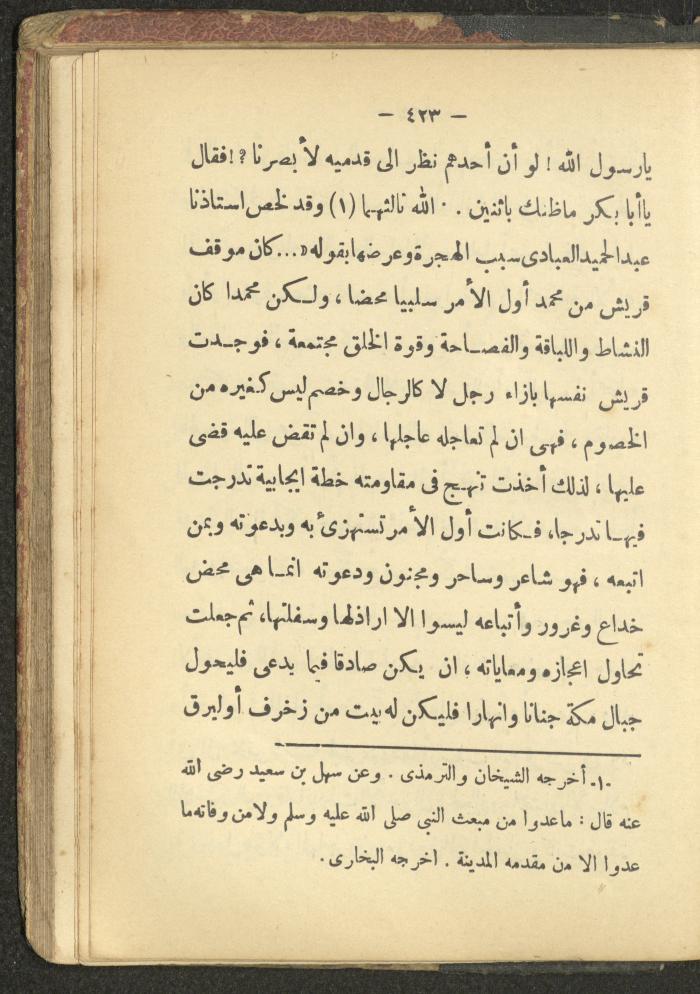 — ٤٢٣ —
يارسول الله ! لو أن أحدهم نظر الى قدميه لأبصرنا ؟ ! فقال
ياأبا بكر ماظنك باثنين . . الله ثالثهما (١) وقد لخص استاذنا
عبدالحميدالعبادى سبب الهجرة وعرضها بقوله «... كان موقف
قريش من محمد أول الأمر سلبيا محضا ، ولكن محمدا كان
النشاط واللباقة والفصاحة وقوة الخلق مجتمعة ، فوجدت
قريش نفسها بازاء رجل لا كالرجال وخصم ليس كغيره من
الخصوم ، فهى ان لم تعاجله عاجلها ، وان لم تقض عليه قضى
عليها ، لذلك أخذت تنهج فى مقاومته خطة ايجابية تدرجت
فيها تدرجا، فكانت أول الأمر تستهزئ به وبدعوته وبمن
اتبعه ، فهو شاعر وساحر ومجنون ودعوته انما هى محض
خداع وغرور وأتباعه ليسوا الا اراذلها وسفلتها، ثم جعلت
تحاول اعجازه ومعاياته ، ان يكن صادقا فيما يدعى فليحول
جبال مكة جنانا وانهارا فليكن له بيت من زخرف أوليرق
-١- أخرجه الشيخان والترمذى . وعن سهل بن سعيد رضى الله
عنه قال : ماعدوا من مبعث النبى صلى الله عليه وسلم ولامن وفاته ما
عدوا الا من مقدمه المدينة . اخرجه البخارى .